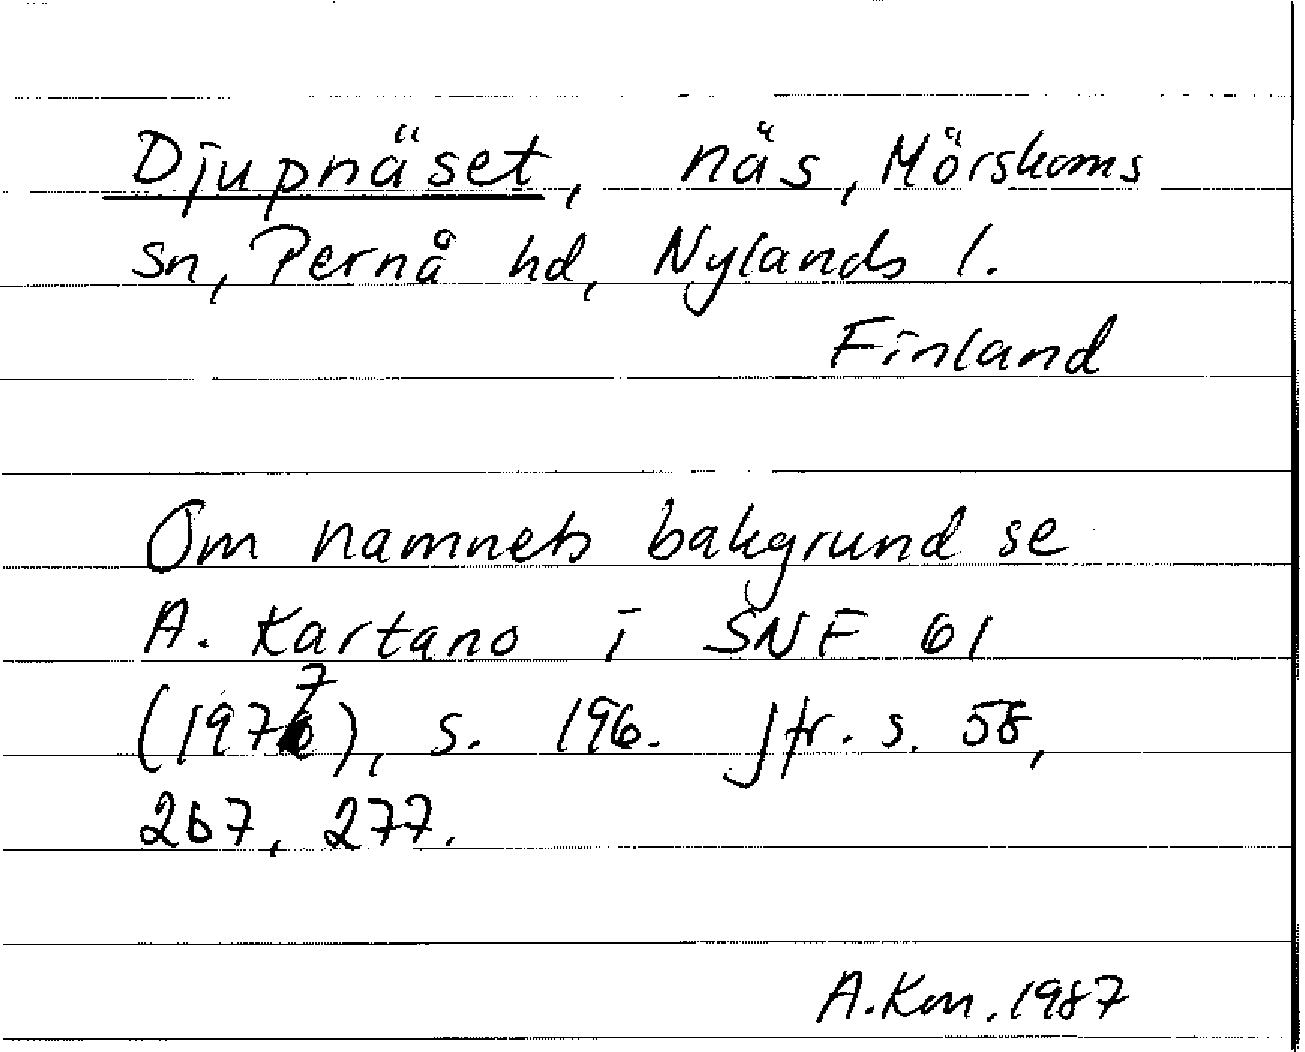 Djupnäset, näs, Mörskoms
sn, Pernå hd, Nylands l.
Finland
Om namnets bakgrund se
A. Kartano i SNF 61
(1977), s. 196. Jfr. s. 58,
267, 277.
A.Km. 1987